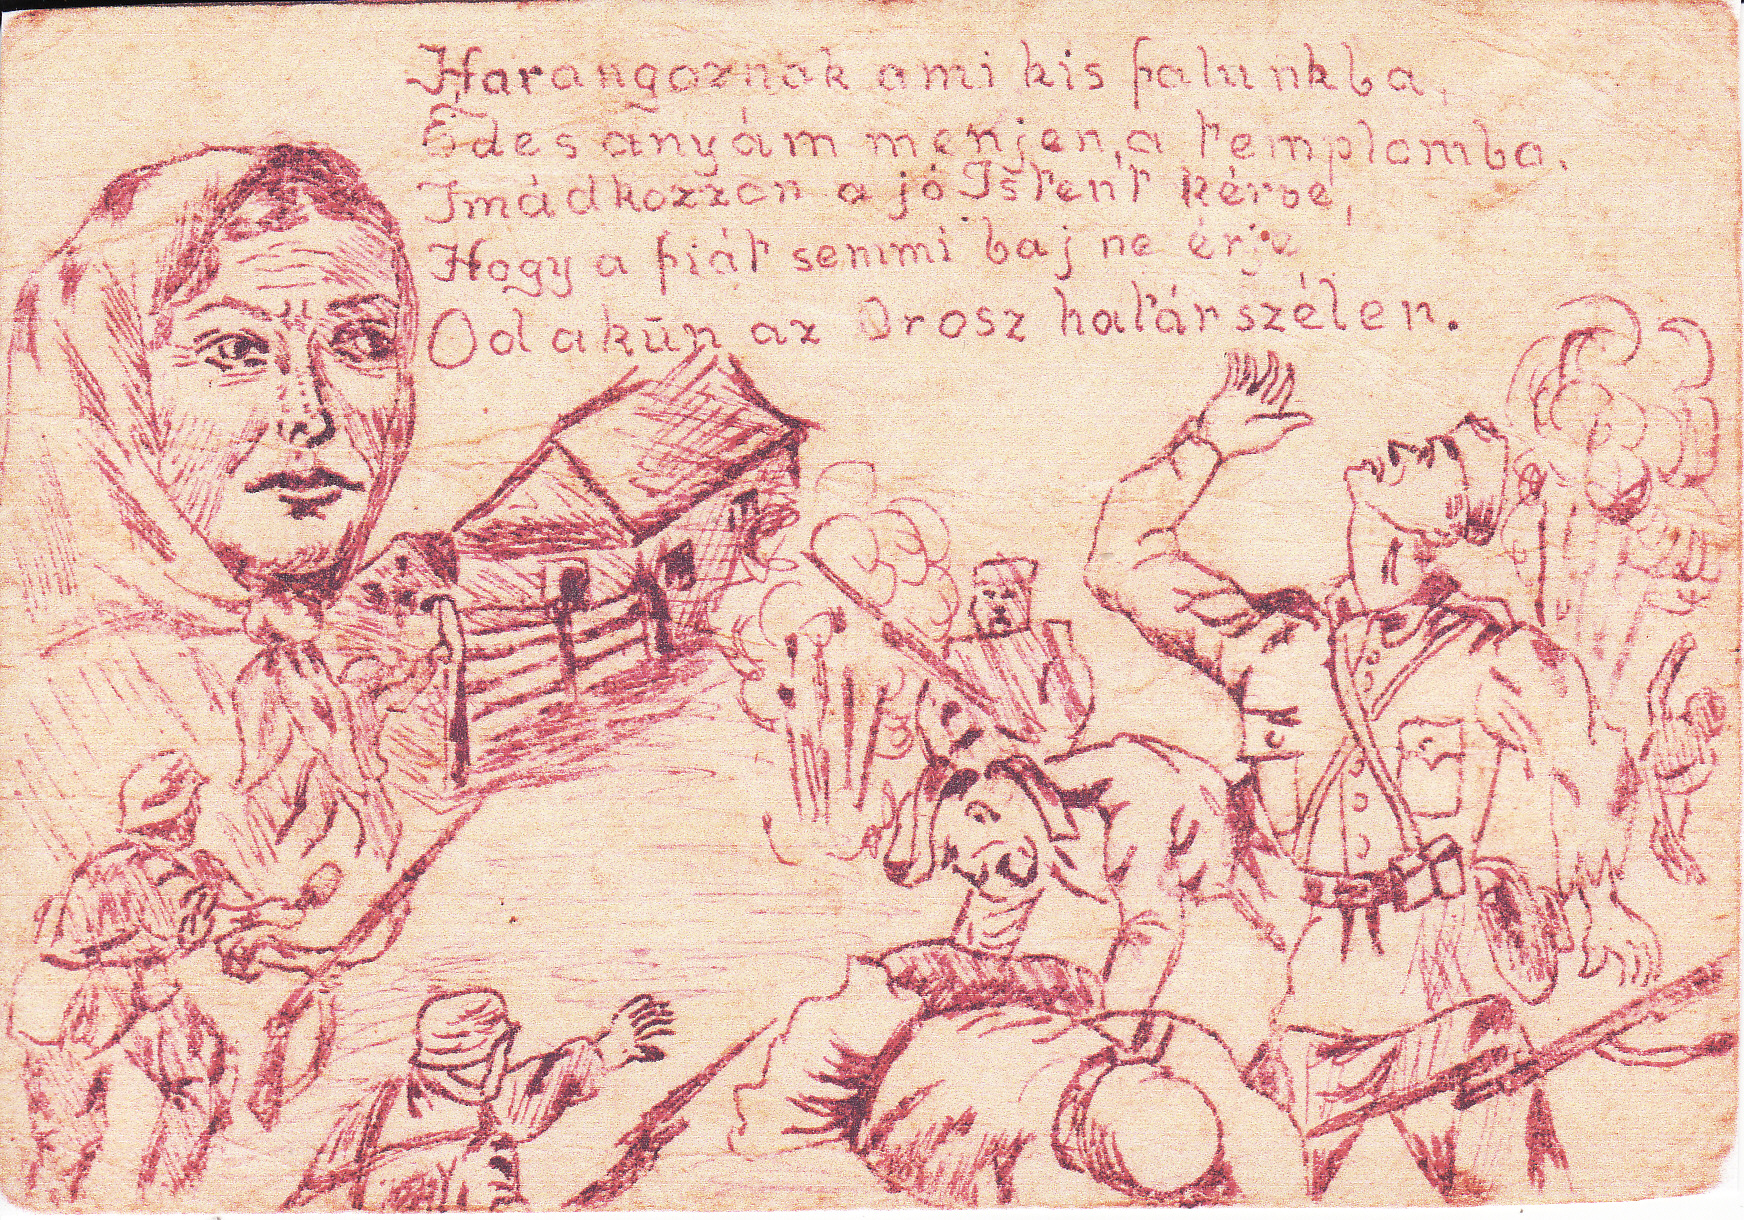 Harangoznak ami kis falunkba,
Édes anyám menjen,a templomba.
Imádkozzon a jó Istent kérve,
Hogy a fiát semmi baj ne érje
Odakűn az Orosz határszélen.